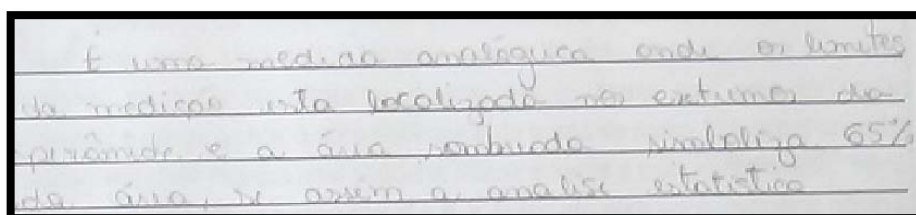 É uma medição analógica onde os limites
da medição esta localizado nos extremos da
pirâmide e a área sombreada simboliza 65%
da área, se assim a analise estatistica